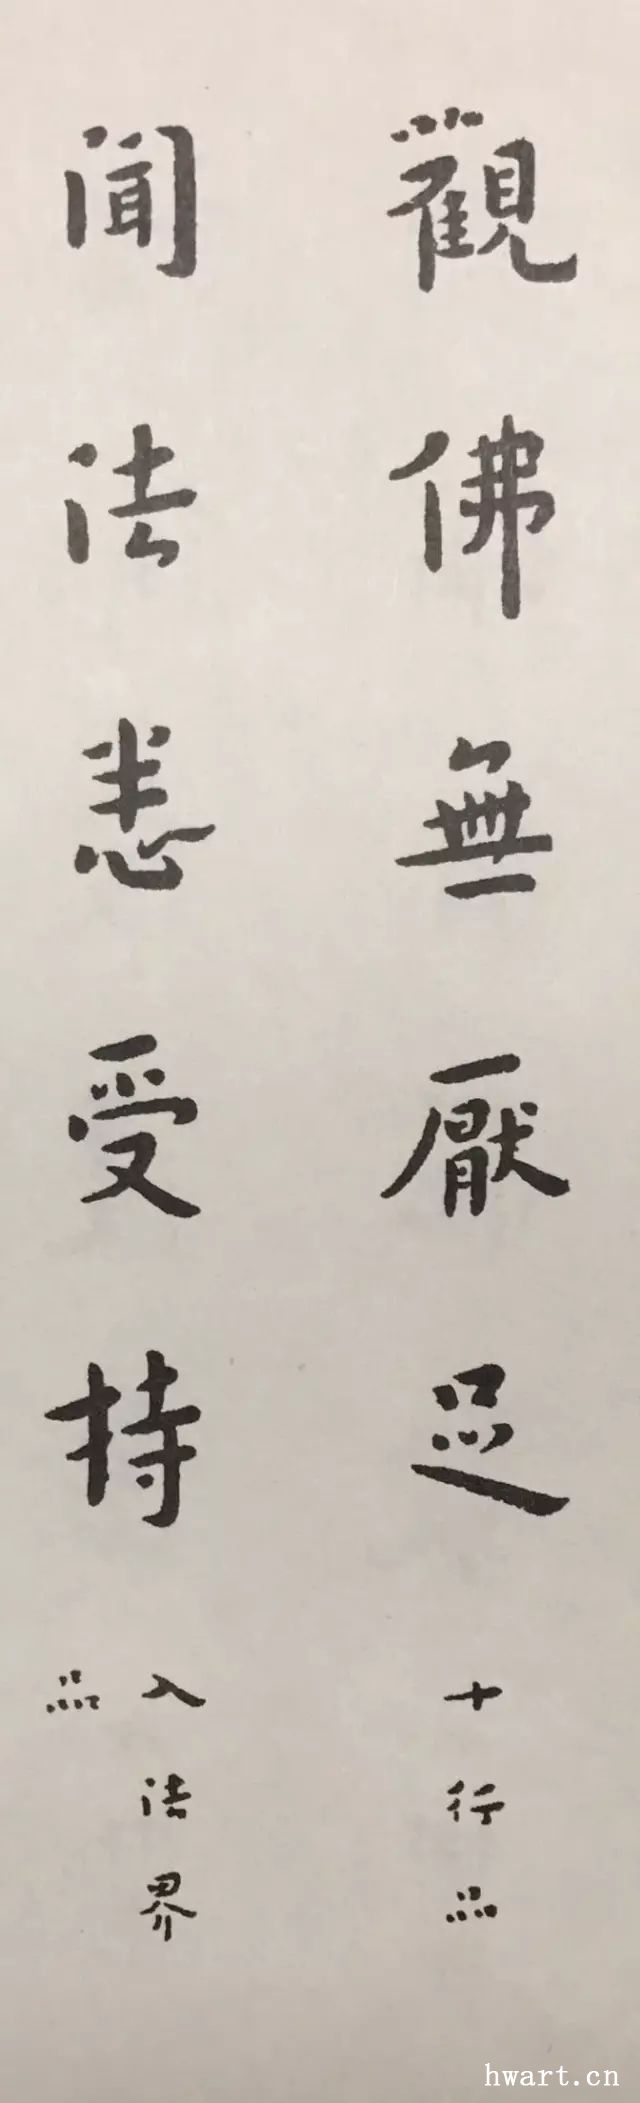 觀佛無厭足
十行品
聞法悉受持
入法界
品
hwart.cn